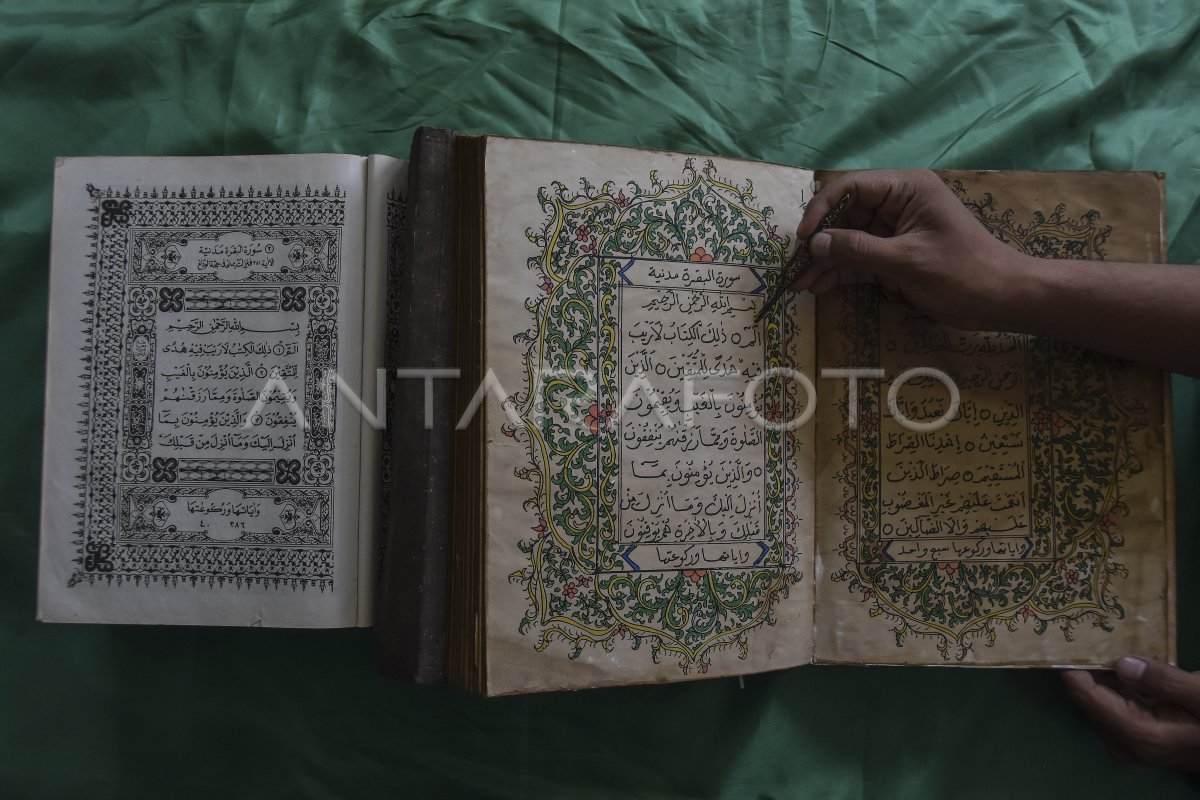 سُورَة البَقَرَة مَدَنِيَّة
بِسْمِ اللهِ الرَّحْمٰنِ الرَّحِيْمِ
الٓمّٓ ۝ ذٰلِكَ الْكِتٰبُ لَارَيْبَ فِيْهِ هُدًى
لِلْمُتَّقِيْنَ ۝ الَّذِيْنَ يُؤْمِنُوْنَ بِالْغَيْبِ
وَيُقِيْمُوْنَ الصَّلٰوةَ وَمِمَّا رَزَقْنٰهُمْ
يُنْفِقُوْنَ ۝ وَالَّذِيْنَ يُؤْمِنُوْنَ بِمَا
اُنْزِلَ اِلَيْكَ وَمَا اُنْزِلَ مِنْ قَبْلِكَ
وَايَاتُهَا وَرُكُوعَتُهَا
٢٨٦ ٤٠
سورة البقرة مدنية
بِسْمِ اللهِ الرَّحْمٰنِ الرَّحِيْمِ
الٓمّٓ ۝ ذٰلِكَ الْكِتَابُ لَارَيْبَ
فِيْهِ هُدًى لِلْمُتَّقِيْنَ ۝ الَّذِيْنَ
يُؤْمِنُوْنَ بِالْغَيْبِ وَيُقِيْمُوْنَ
الصَّلٰوةَ وَمِمَّا رَزَقْنٰهُمْ يُنْفِقُوْنَ
۝ وَالَّذِيْنَ يُؤْمِنُوْنَ بِمَا
اُنْزِلَ اِلَيْكَ وَمَا اُنْزِلَ مِنْ
قَبْلِكَ وَبِالْاٰخِرَةِ هُمْ يُوْقِنُوْنَ
واياتها وركوعتها
اَلْحَمْدُ لِلّٰهِ رَبِّ الْعَالَمِيْنَ ۝
الرَّحْمٰنِ الرَّحِيْمِ
الدِّيْنِ ۝ اِيَّاكَ نَعْبُدُ وَاِيَّاكَ
نَسْتَعِيْنُ ۝ اِهْدِنَا الصِّرَاطَ
الْمُسْتَقِيْمَ ۝ صِرَاطَ الَّذِيْنَ
اَنْعَمْتَ عَلَيْهِمْ غَيْرِ الْمَغْضُوْبِ
عَلَيْهِمْ وَلَا الضَّالِّيْنَ ۝
واياتها وركوعها سبع واحد
ANTARAFOTO